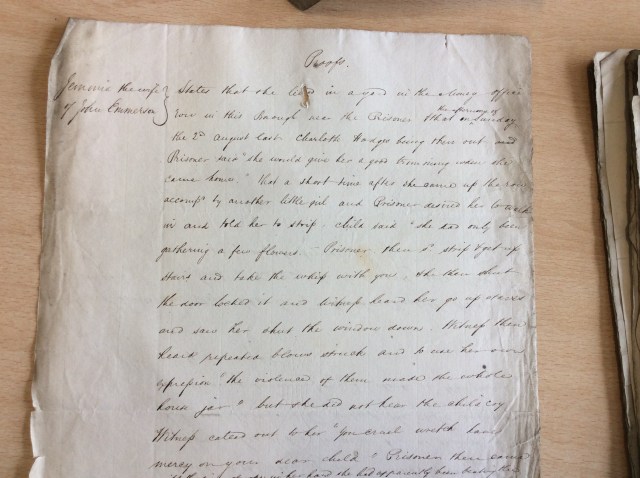 Proofs.
Jemmie the wife
of John Emmerson
States that she lived in a yard in the Money office
row in this Borough near the Prisoner that on the afternoon of Sunday
the 2d August last Charlotte Hodges being then out said
Prisoner said "she would give her a good trimming when she
came home." That a short time after she came up the row
accompd by another little girl and Prisoner desired her to walk
in and told her to strip. Child said "she had only been
gathering a few flowers. Prisoner then sd strip & get up
stairs and take the whip with you. She then shut
the door locked it and Witness heard her go up stairs
and saw her shut the window down. Witness then
heard repeated blows struck and to use her own
expression "the violence of them made the whole
house jar" but she did not hear the child cry
Witness called out to her "You cruel wretch have
mercy on your dear child" Prisoner then came
in her hand she had apparently been beating the